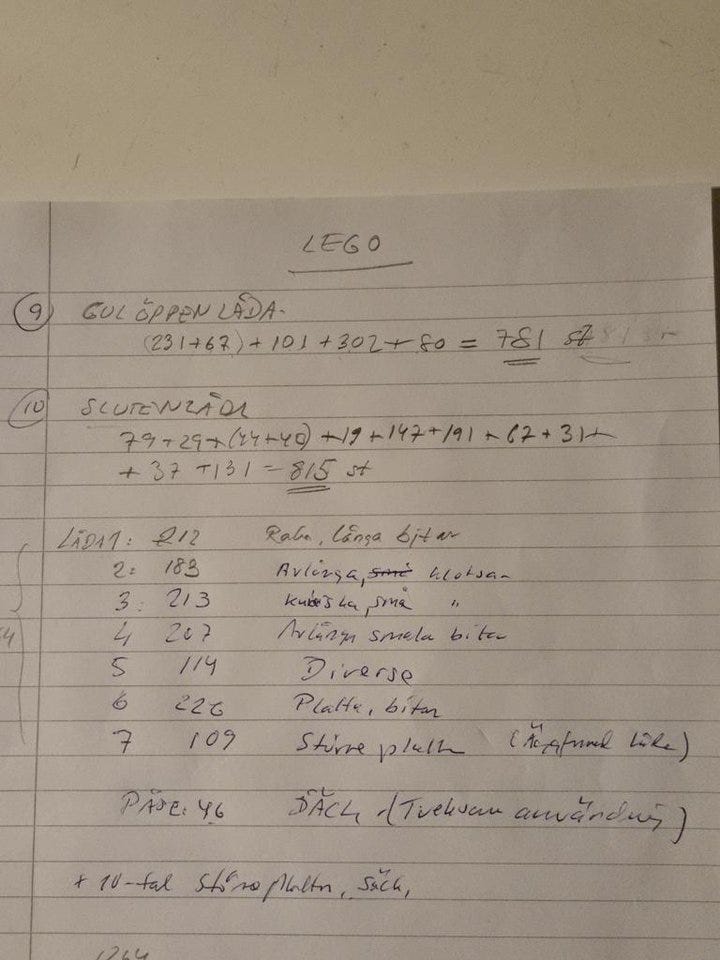 LEGO
9 GUL ÖPPEN LÅDA.
(231+67)+101+302+80 = 781 st
10 SLUTEN LÅDA
79+29+(44+40)+19+147+191+67+31+
+37+131=815 st
LÅDA 1: 212 Raka, långa bitar
2: 183 Avlånga, små klotsar
3: 213 kubiska, små "
4 207 Avlånga smala bitar
5 114 Diverse
6 226 Platta, bitar
7 109 Större platta
PÅSE: 46 DÄCK (Tveksam användning)
+ 10-tal Stora plattor, Däck,
1264